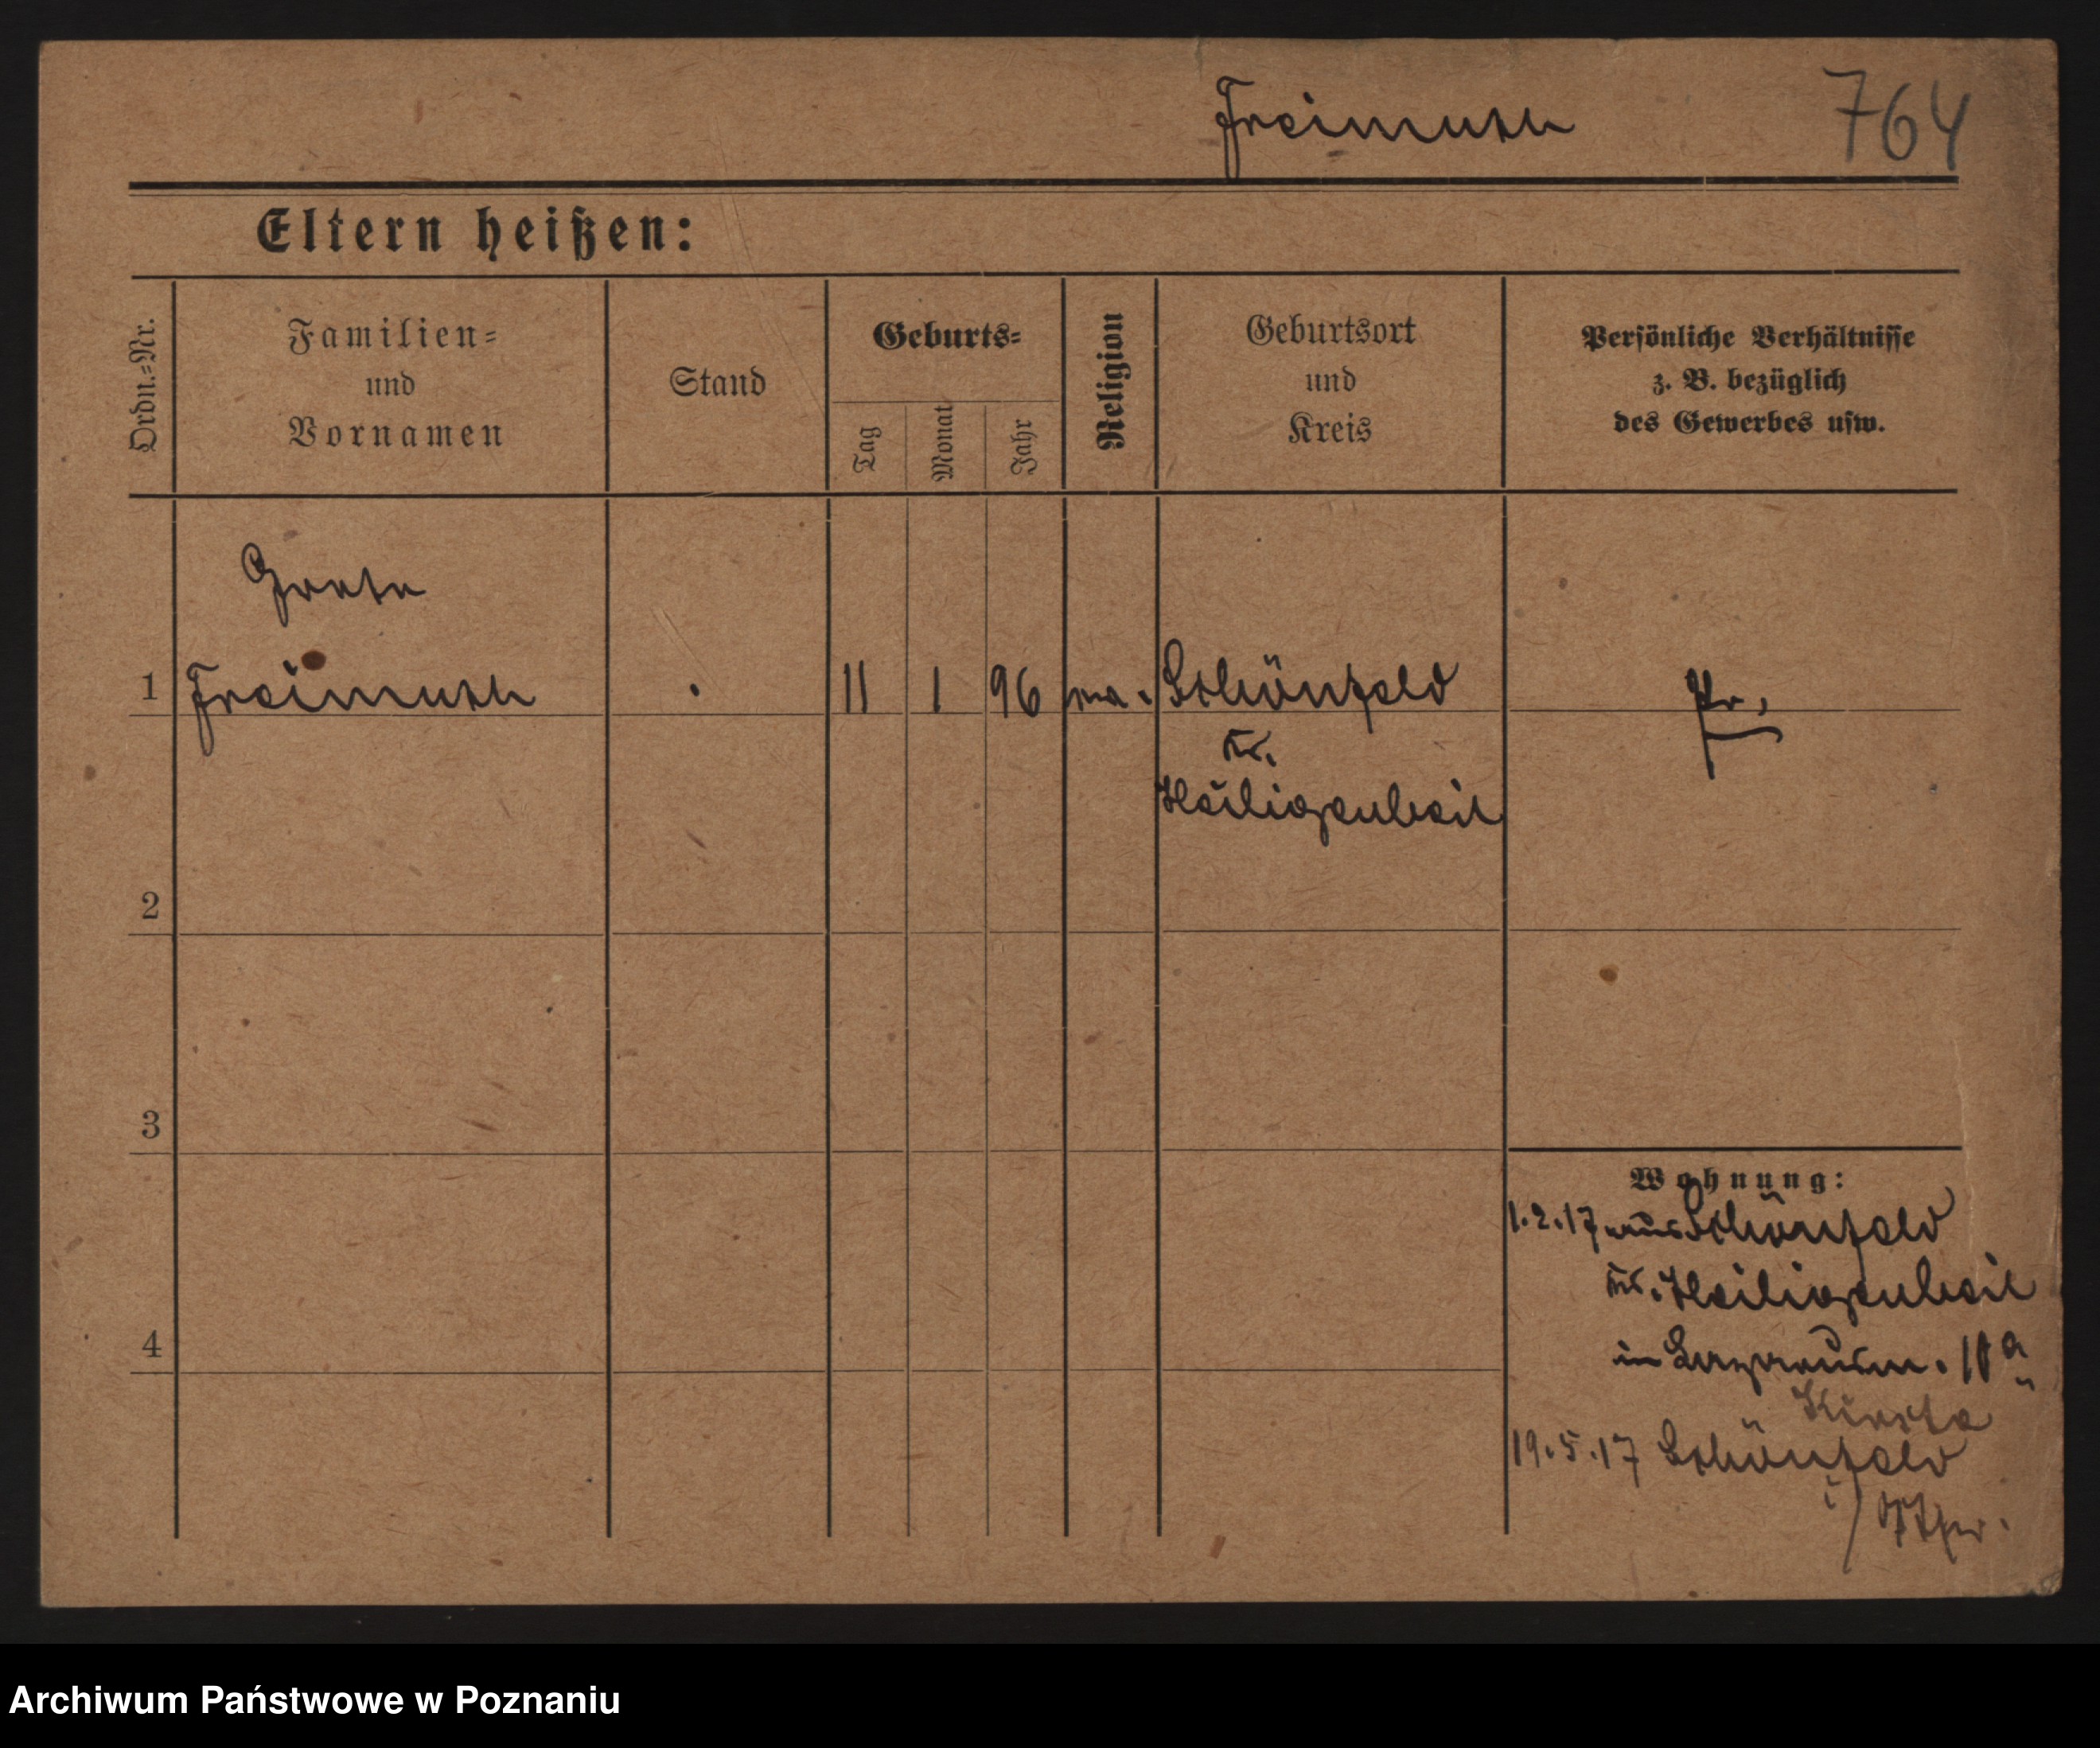 Freimuth 764
Eltern heißen:
Ordn.=Nr.
Familien=
und
Vornamen
Stand
Geburts=
Tag
Monat
Jahr
Religion
Geburtsort
und
Kreis
Persönliche Verhältnisse
z. B. bezüglich
des Gewerbes usw.
Grete
1 Freimuth 11 1 96 Schönfeld Pr.
Kr.
Heiligenbeil
2
3
4
Wohnung:
1.2.17 aus Schönfeld
Kr. Heiligenbeil
19.5.17 Schönfeld
i/Ostpr.
Archiwum Państwowe w Poznaniu